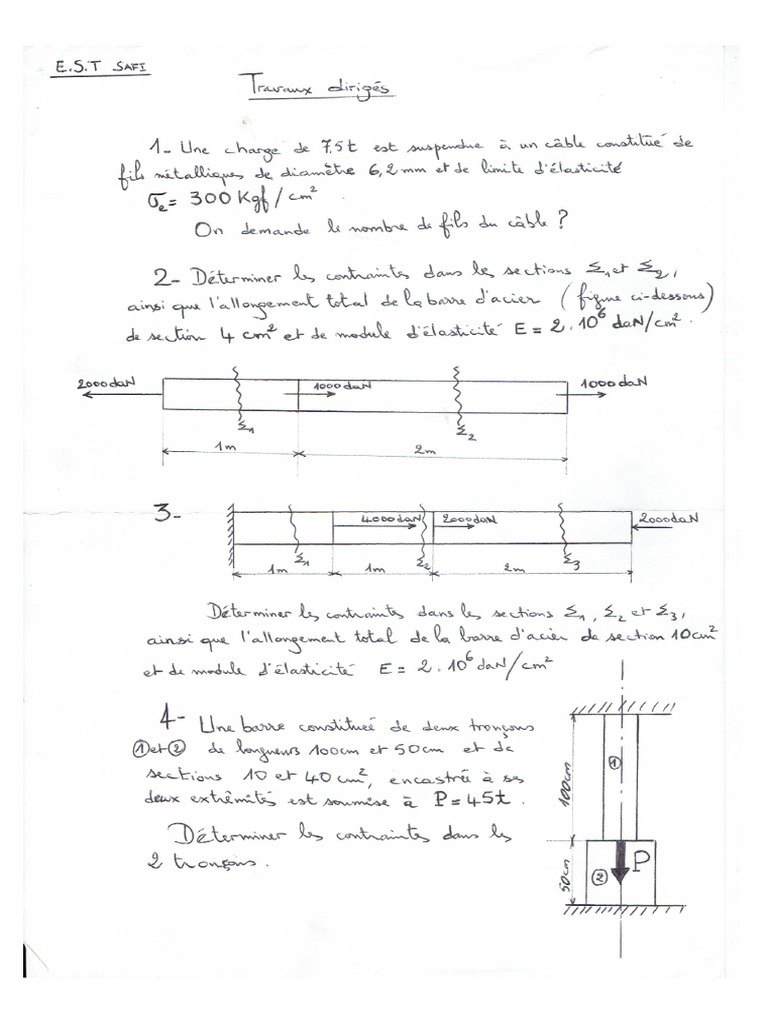 E.S.T SAFI
Travaux dirigés
1- Une charge de 7,5t est suspendue à un câble constitué de
fils métalliques de diamètre 6,2 mm et de limite d'élasticité
σe = 300 Kgf/cm²
On demande le nombre de fils du câble ?
2- Déterminer les contraintes dans les sections Σ1 et Σ2,
ainsi que l'allongement total de la barre d'acier (figure ci-dessous)
de section 4 cm² et de module d'élasticité E = 2.10⁶ daN/cm².
2000daN 1000daN 1000daN
Σ1 Σ2
1m 2m
3- 4000daN 2000daN 2000daN
Σ1 Σ2 Σ3
1m 1m 2m
Déterminer les contraintes dans les sections Σ1, Σ2 et Σ3,
ainsi que l'allongement total de la barre d'acier de section 10cm²
et de module d'élasticité E = 2.10⁶ daN/cm²
4- Une barre constituée de deux tronçons
① et ② de longueurs 100cm et 50cm et de
sections 10 et 40 cm², encastrée à ses
deux extrêmités est soumise à P = 45t.
Déterminer les contraintes dans les
2 tronçons.
100cm
①
50cm
②
P